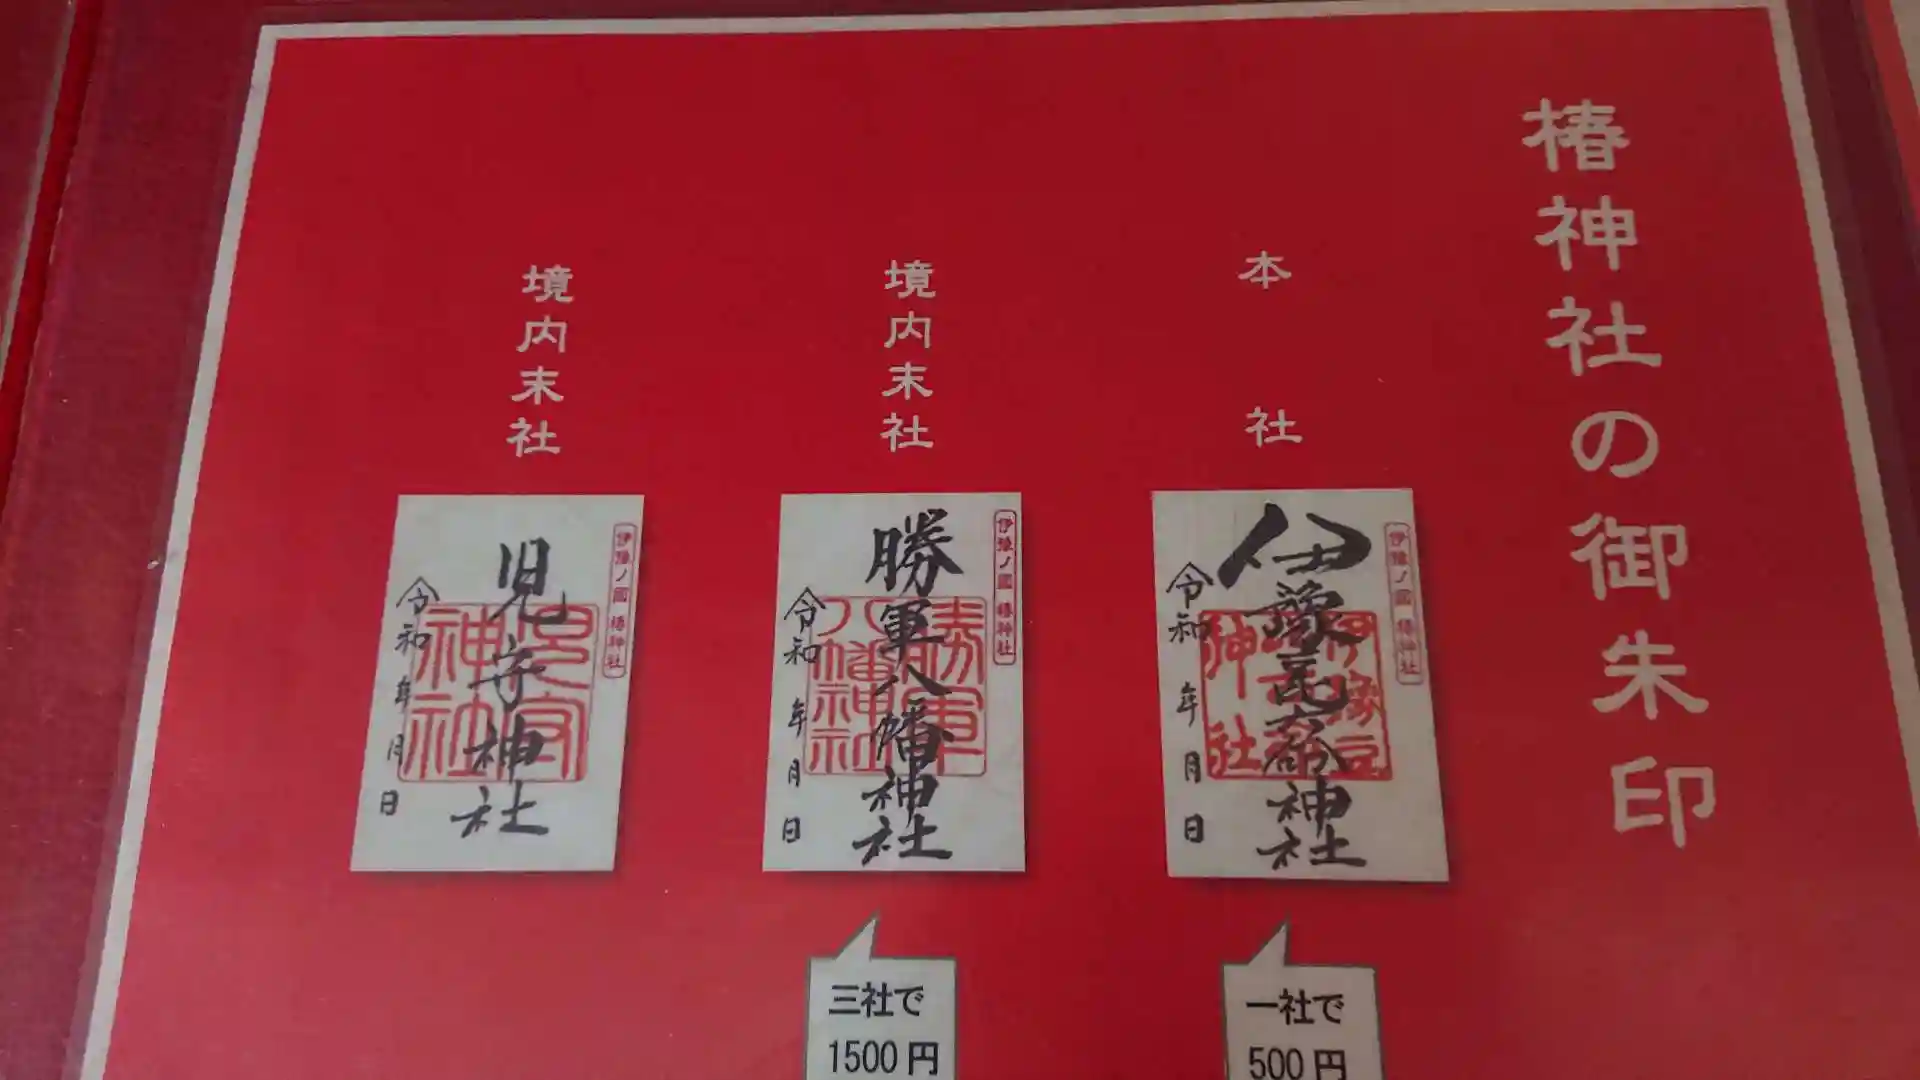 椿神社の御朱印
本社
伊豫ノ國 椿神社
伊豫豆比古命神社
令和 年 月 日
一社で
500円
境内末社
伊豫ノ國 椿神社
勝軍八幡神社
勝軍八幡神社
令和 年 月 日
三社で
1500円
境内末社
伊豫ノ國 椿神社
児守神社
児守神社
令和 年 月 日